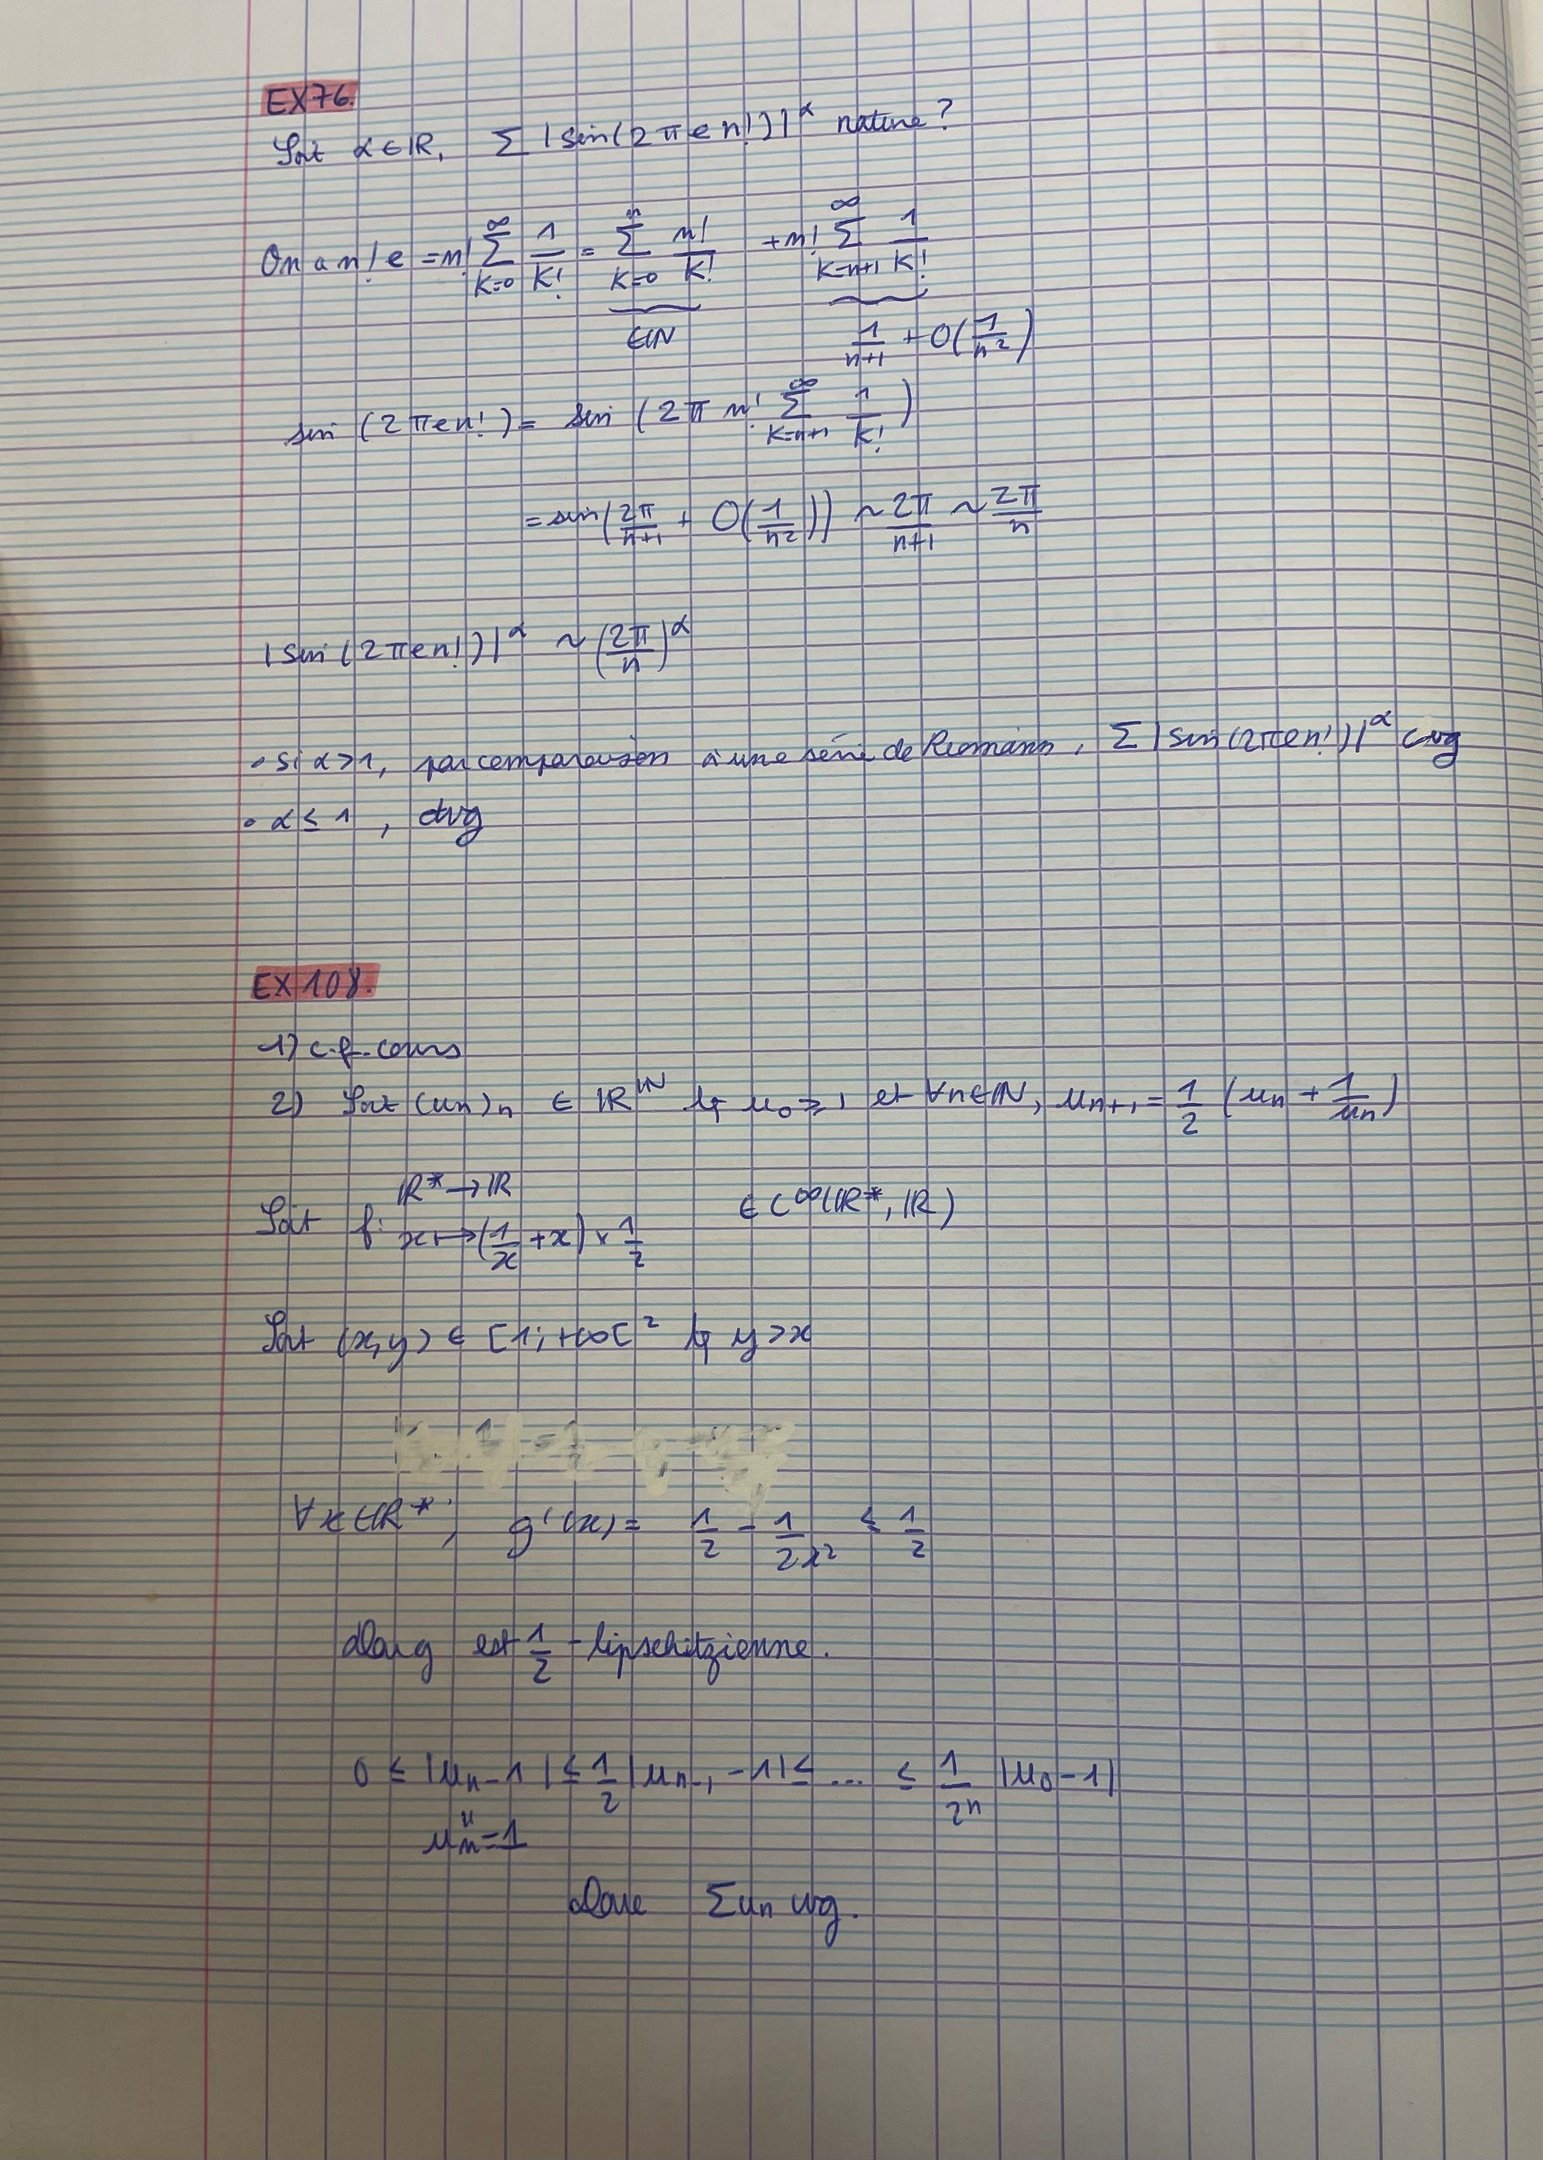 EX76.
Soit α∈ℝ, Σ |sin(2πen!)|^α nature ?
On a n!e = n! Σ_{k=0}^{∞} 1/k! = Σ_{k=0}^{n} n!/k! + n! Σ_{k=n+1}^{∞} 1/k!
∈ℕ 1/(n+1) + O(1/n²)
sin(2πen!) = sin(2π n! Σ_{k=n+1}^{∞} 1/k!)
= sin(2π/(n+1) + O(1/n²)) ~ 2π/(n+1) ~ 2π/n
|sin(2πen!)|^α ~ (2π/n)^α
• Si α>1, par comparaison à une série de Riemann, Σ|sin(2πen!)|^α cvg
• α ≤ 1, dvg
EX 108.
1) c.f. cours
2) Soit (un)n ∈ ℝ^ℕ tq u₀ ≥ 1 et ∀n∈ℕ, u_{n+1} = 1/2 (un + 1/un)
Soit f: ℝ* → ℝ ∈ C^∞(ℝ*, ℝ)
x ↦ (1/x + x) × 1/2
Soit (x,y) ∈ [1; +∞[² tq y > x
∀x∈ℝ*, g'(x) = 1/2 - 1/2x² ≤ 1/2
donc g est 1/2-lipschitzienne.
0 ≤ |un - 1| ≤ 1/2 |u_{n-1} - 1| ≤ ... ≤ 1/2^n |u₀ - 1|
Donc Σun cvg.